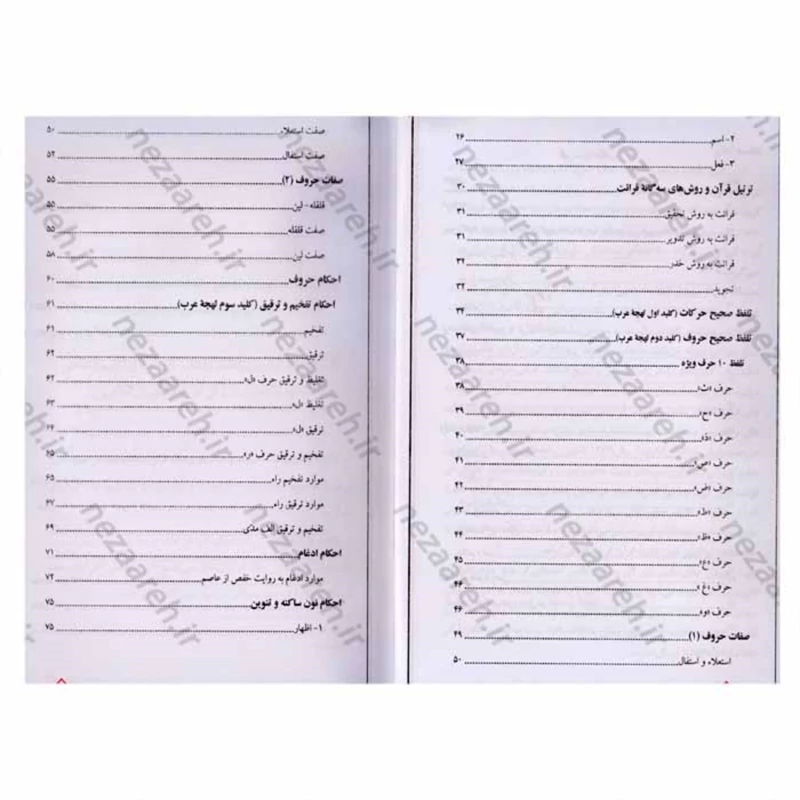 ۲- اسم ........ ۲۶
۳- فعل ........ ۲۷
ترتیل قرآن و روش‌های سه‌گانهٔ قرائت ........ ۳۰
قرائت به روش تحقیق ........ ۳۱
قرائت به روش تدویر ........ ۳۱
قرائت به روش حَدر ........ ۳۲
تجوید ........ ۳۲
تلفظ صحیح حرکات (کلید اول لهجهٔ عرب) ........ ۳۴
تلفظ صحیح حروف (کلید دوم لهجهٔ عرب) ........ ۳۷
تلفظ ۱۰ حرف ویژه ........ ۳۸
حرف «ث» ........ ۳۸
حرف «ح» ........ ۳۹
حرف «ذ» ........ ۴۰
حرف «ص» ........ ۴۱
حرف «ض» ........ ۴۲
حرف «ط» ........ ۴۳
حرف «ظ» ........ ۴۴
حرف «ع» ........ ۴۵
حرف «غ» ........ ۴۶
حرف «و» ........ ۴۶
صفات حروف (۱) ........ ۴۹
استعلاء و استفال ........ ۵۰
صفت استعلاء ........ ۵۰
صفت استفال ........ ۵۲
صفات حروف (۲) ........ ۵۵
قلقله- لین ........ ۵۵
صفت قلقله ........ ۵۵
صفت لین ........ ۵۸
احکام حروف ........ ۶۰
احکام تفخیم و ترقیق (کلید سوم لهجهٔ عرب) ........ ۶۱
تفخیم ........ ۶۱
ترقیق ........ ۶۲
تغلیظ و ترقیق حرف «ل» ........ ۶۲
تغلیظ «ل» ........ ۶۳
ترقیق «ل» ........ ۶۴
تفخیم و ترقیق حرف «ر» ........ ۶۵
موارد تفخیم راء ........ ۶۵
موارد ترقیق راء ........ ۶۷
تفخیم و ترقیق الف مدّی ........ ۶۹
احکام ادغام ........ ۷۱
موارد ادغام به روایت حفص از عاصم ........ ۷۲
احکام نون ساکنه و تنوین ........ ۷۵
۱- اظهار ........ ۷۵
nezaareh.ir